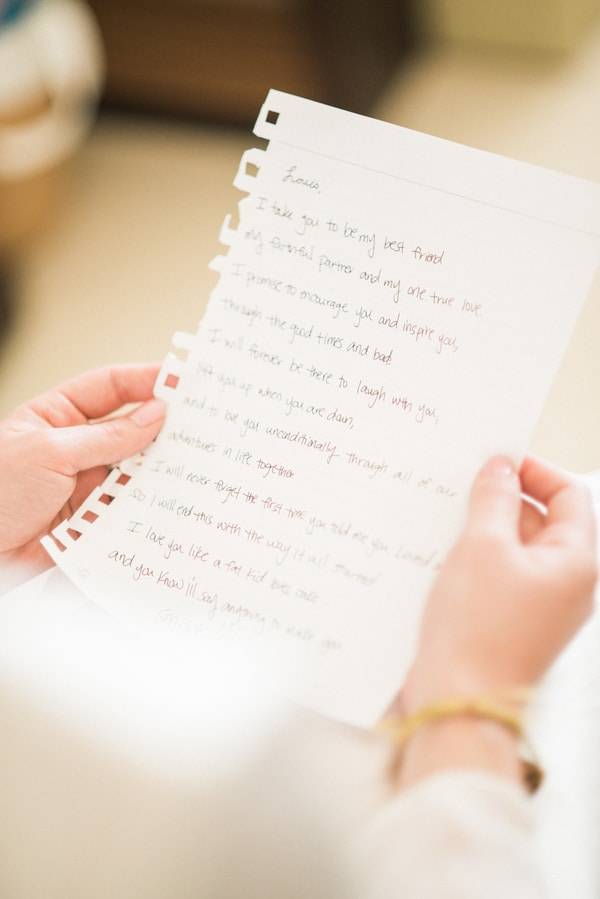 Louis,
I take you to be my best friend
my faithful partner and my one true love.
I promise to encourage you and inspire you,
through the good times and bad.
I will forever be there to laugh with you,
lift you up when you are down,
and to love you unconditionally through all of our
adventures in life together
I will never forget the first time you told me you loved
So I will end this with the way it all started
I love you like a fat kid loves cake
and you know i'll say anything to make you